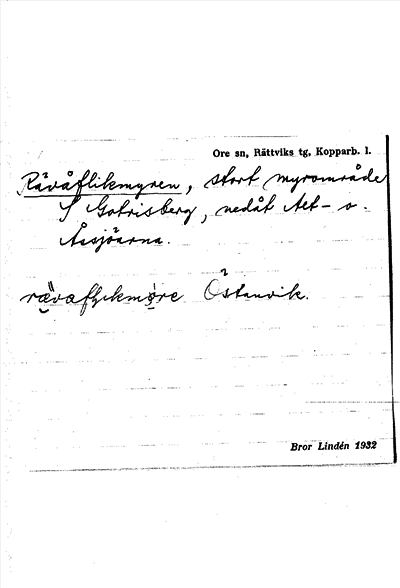 Ore sn, Rättviks tg, Kopparb. l.
Rävåflikmyren, stort myrområde
S Gotrisberg, nedåt Aet- o.
Åssjöarna.
Östanvik.
Bror Lindén 1932